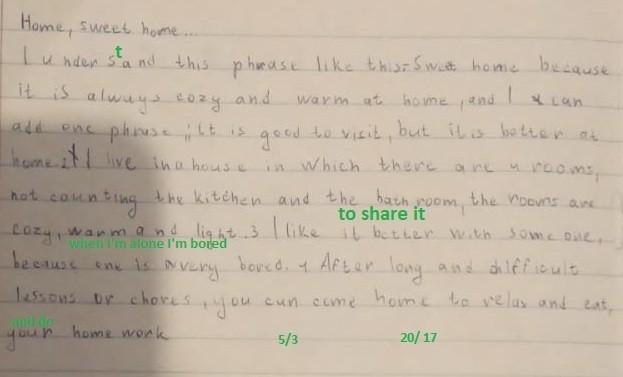 Home, sweet home...
t
I understand this phrase like this: Sweet home because
it is always cozy and warm at home, and I can
add one phrase, "It is good to visit, but it is better at
home 2 I live in a house in which there are 4 rooms,
not counting the kitchen and the bathroom, the rooms are
to share it
cozy, warm and light. 3 I like it better with someone,
when I'm alone I'm bored
because one is very bored. 4 After long and difficult
lessons or chores, you can come home to relax and eat,
your home work
5/3 20/ 17